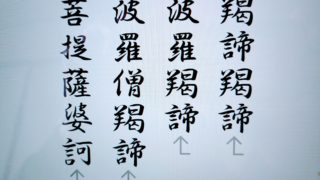 羯諦羯諦
波羅羯諦
波羅僧羯諦
菩提薩婆訶